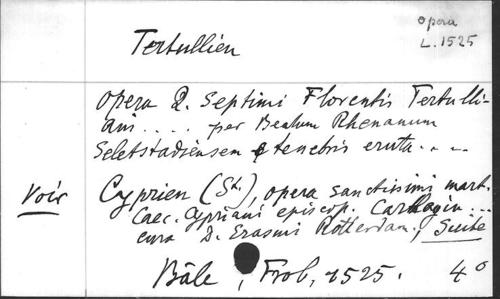 Tertullien
opera
L. 1525
opera Q. Septimi Florentis Tertulli-
ani .... per Beatum Rhenanum
Seletstadiensem e tenebris eruta. . .
Voir
Cyprien (St.), opera sanctissimi mart.
Caec. Cypriani episcop. Carthagin...
cura D. Erasmi Rotterdam., / Suite
Bâle, Frob, 1525. 4°